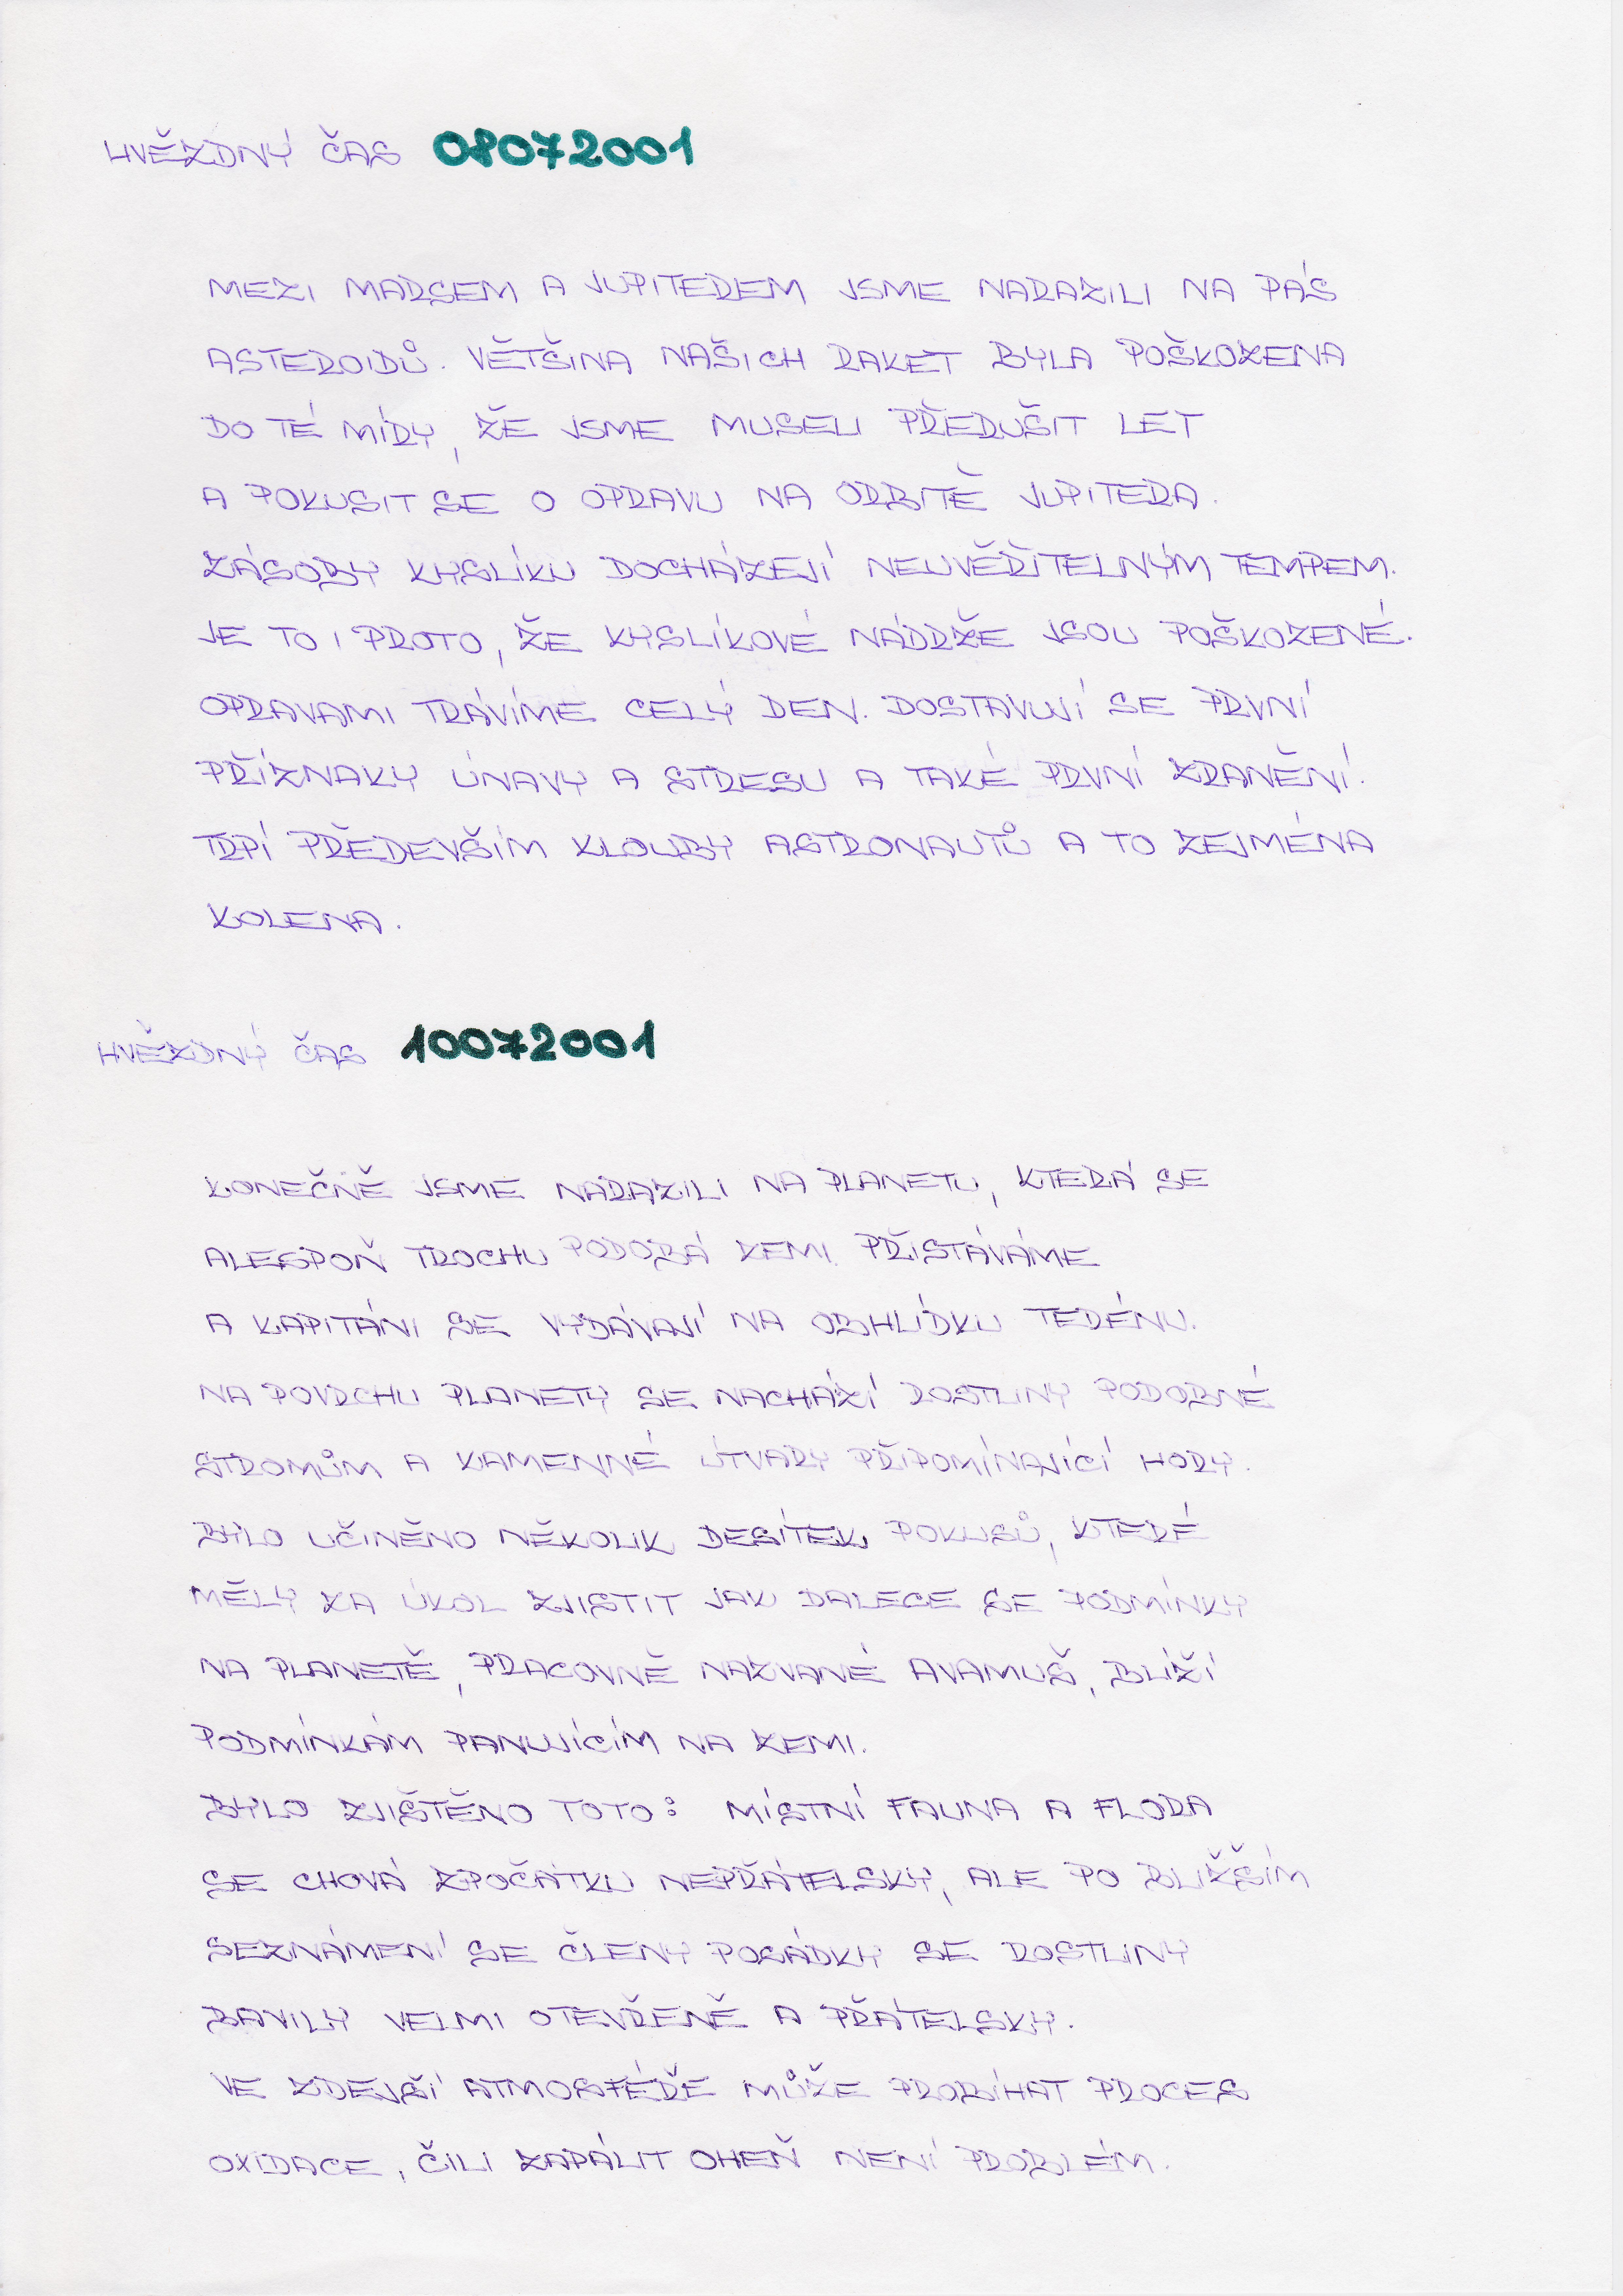 HVĚZDNÝ ČAS 08072001
MEZI MARSEM A JUPITEREM JSME NARAZILI NA PÁS
ASTEROIDŮ. VĚTŠINA NAŠICH RAKET BYLA POŠKOZENA
DO TÉ MÍRY, ŽE JSME MUSELI PŘERUŠIT LET
A POKUSIT SE O OPRAVU NA ORBITĚ JUPITERA.
ZÁSOBY KYSLÍKU DOCHÁZEJÍ NEUVĚŘITELNÝM TEMPEM.
JE TO I PROTO, ŽE KYSLÍKOVÉ NÁDRŽE JSOU POŠKOZENÉ.
OPRAVAMI TRÁVÍME CELÝ DEN. DOSTAVUJÍ SE PRVNÍ
PŘÍZNAKY ÚNAVY A STRESU A TAKÉ PRVNÍ ZRANĚNÍ.
TRPÍ PŘEDEVŠÍM KLOUBY ASTRONAUTŮ A TO ZEJMÉNA
KOLENA.
HVĚZDNÝ ČAS 10072001
KONEČNĚ JSME NARAZILI NA PLANETU, KTERÁ SE
ALESPOŇ TROCHU PODOBÁ ZEMI. PŘISTÁVÁME
A KAPITÁNI SE VYDÁVAJÍ NA OBHLÍDKU TERÉNU.
NA POVRCHU PLANETY SE NACHÁZÍ ROSTLINY PODOBNÉ
STROMŮM A KAMENNÉ ÚTVARY PŘIPOMÍNAJÍCÍ HORY.
BYLO UČINĚNO NĚKOLIK DESÍTEK POKUSŮ, KTERÉ
MĚLY ZA ÚKOL ZJISTIT JAK DALECE SE PODMÍNKY
NA PLANETĚ, PRACOVNĚ NAZVANÉ AVAMUŠ, BLÍŽÍ
PODMÍNKÁM PANUJÍCÍM NA ZEMI.
BYLO ZJIŠTĚNO TOTO: MÍSTNÍ FAUNA A FLORA
SE CHOVÁ ZPOČÁTKU NEPŘÁTELSKY, ALE PO BLIŽŠÍM
SEZNÁMENÍ SE ČLENY POSÁDKY SE ROSTLINY
BAVILY VELMI OTEVŘENĚ A PŘÁTELSKY.
VE ZDEJŠÍ ATMOSFÉŘE MŮŽE PROBÍHAT PROCES
OXIDACE, ČILI ZAPÁLIT OHEŇ NENÍ PROBLÉM.